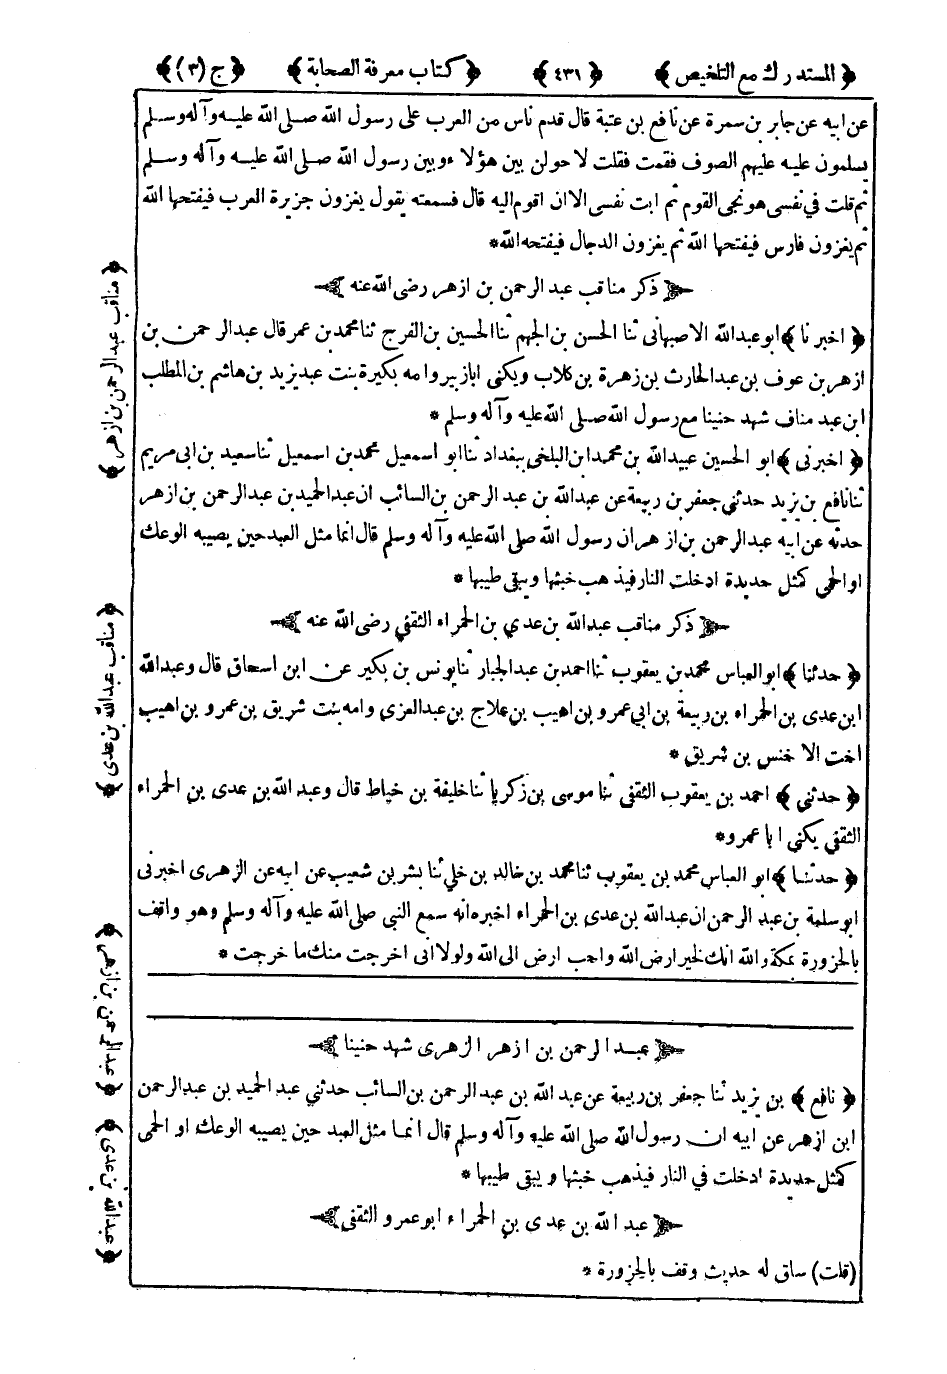 ﴿ المستدرك مع التلخيص ﴾ ﴿ ٤٣١ ﴾ ﴿ كتاب معرفة الصحابة ﴾ ﴿ ج (٣) ﴾
عن ابيه عن جابر بن سمرة عن نافع بن عتبة قال قدم ناس من العرب على رسول الله صلى الله عليه وآله وسلم
يسلمون عليه عليهم الصوف فقمت فقلت لاحولن بين هؤلاء وبين رسول الله صلى الله عليه وآله وسلم
ثم قلت في نفسى هو نجى القوم ثم ابت نفسى الا ان اقوم اليه قال فسمعته يقول يغزون جزيرة العرب فيفتحها الله
ثم يغزون فارس فيفتحها الله ثم يغزون الدجال فيفتحه الله*
﴿ ذكر مناقب عبد الرحمن بن ازهر رضى الله عنه ﴾
﴿ اخبرنا ﴾ ابو عبدالله الاصبهانى ثنا الحسن بن الجهم ثنا الحسين بن الفرج ثنا محمد بن عمر قال عبد الرحمن بن
ازهر بن عوف بن عبد الحارث بن زهرة بن كلاب ويكنى ابا زبير وامه بكيرة بنت عبد يزيد بن هاشم بن المطلب
ابن عبد مناف شهد حنينا مع رسول الله صلى الله عليه وآله وسلم *
﴿ اخبرنى ﴾ ابو الحسين عبيد الله بن محمد ابن البلخى ببغداد ثنا ابو اسمعيل محمد بن اسمعيل ثنا سعيد بن ابى مريم
ثنا نافع بن يزيد حدثني جعفر بن ربيعة عن عبد الله بن عبد الرحمن بن السائب ان عبد الحميد بن عبد الرحمن بن ازهر
حدثه عن ابيه عبد الرحمن بن ازهر ان رسول الله صلى الله عليه وآله وسلم قال انما مثل العبد حين يصيبه الوعك
او الحمى كمثل حديدة ادخلت النار فيذهب خبثها ويبقى طيبها *
﴿ ذكر مناقب عبد الله بن عدي بن الحمراء الثقفي رضى الله عنه ﴾
﴿ حدثنا ﴾ ابو العباس محمد بن يعقوب ثنا احمد بن عبد الجبار ثنا يونس بن بكير عن ابن اسحاق قال وعبد الله
ابن عدى بن الحمراء بن ربيعة بن ابي عمرو بن اهيب بن علاج بن عبد العزى وامه بنت شريق بن عمرو بن اهيب
اخت الاخنس بن شريق *
﴿ حدثني ﴾ احمد بن يعقوب الثقفى ثنا موسى بن زكريا ثنا خليفة بن خياط قال وعبد الله بن عدى بن الحمراء
الثقفي يكنى ابا عمرو*
﴿ حدثنا ﴾ ابو العباس محمد بن يعقوب ثنا محمد بن خالد بن خلي ثنا بشر بن شعيب عن ابيه عن الزهرى اخبرنى
ابو سلمة بن عبد الرحمن ان عبد الله بن عدى بن الحمراء اخبره انه سمع النبي صلى الله عليه وآله وسلم وهو واقف
بالحزورة بمكة والله انك لخير ارض الله واحب ارض الى الله ولولا انى اخرجت منك ما خرجت *
﴿ عبد الرحمن بن ازهر الزهرى شهد حنينا ﴾
﴿ نافع ﴾ بن يزيد ثنا جعفر بن ربيعة عن عبد الله بن عبد الرحمن بن السائب حدثني عبد الحميد بن عبد الرحمن
ابن ازهر عن ابيه ان رسول الله صلى الله عليه وآله وسلم قال انما مثل العبد حين يصيبه الوعك او الحمى
كمثل حديدة ادخلت في النار فيذهب خبثها ويبقى طيبها *
﴿ عبد الله بن عدى بن الحمراء ابو عمرو الثقفى ﴾
(قلت) ساق له حديث وقف بالحزورة *
﴿ مناقب عبد الرحمن بن ازهر ﴾
﴿ مناقب عبد الله بن عدى ﴾
﴿ عبد الرحمن بن ازهر ﴾
﴿ عبد الله بن عدى ﴾